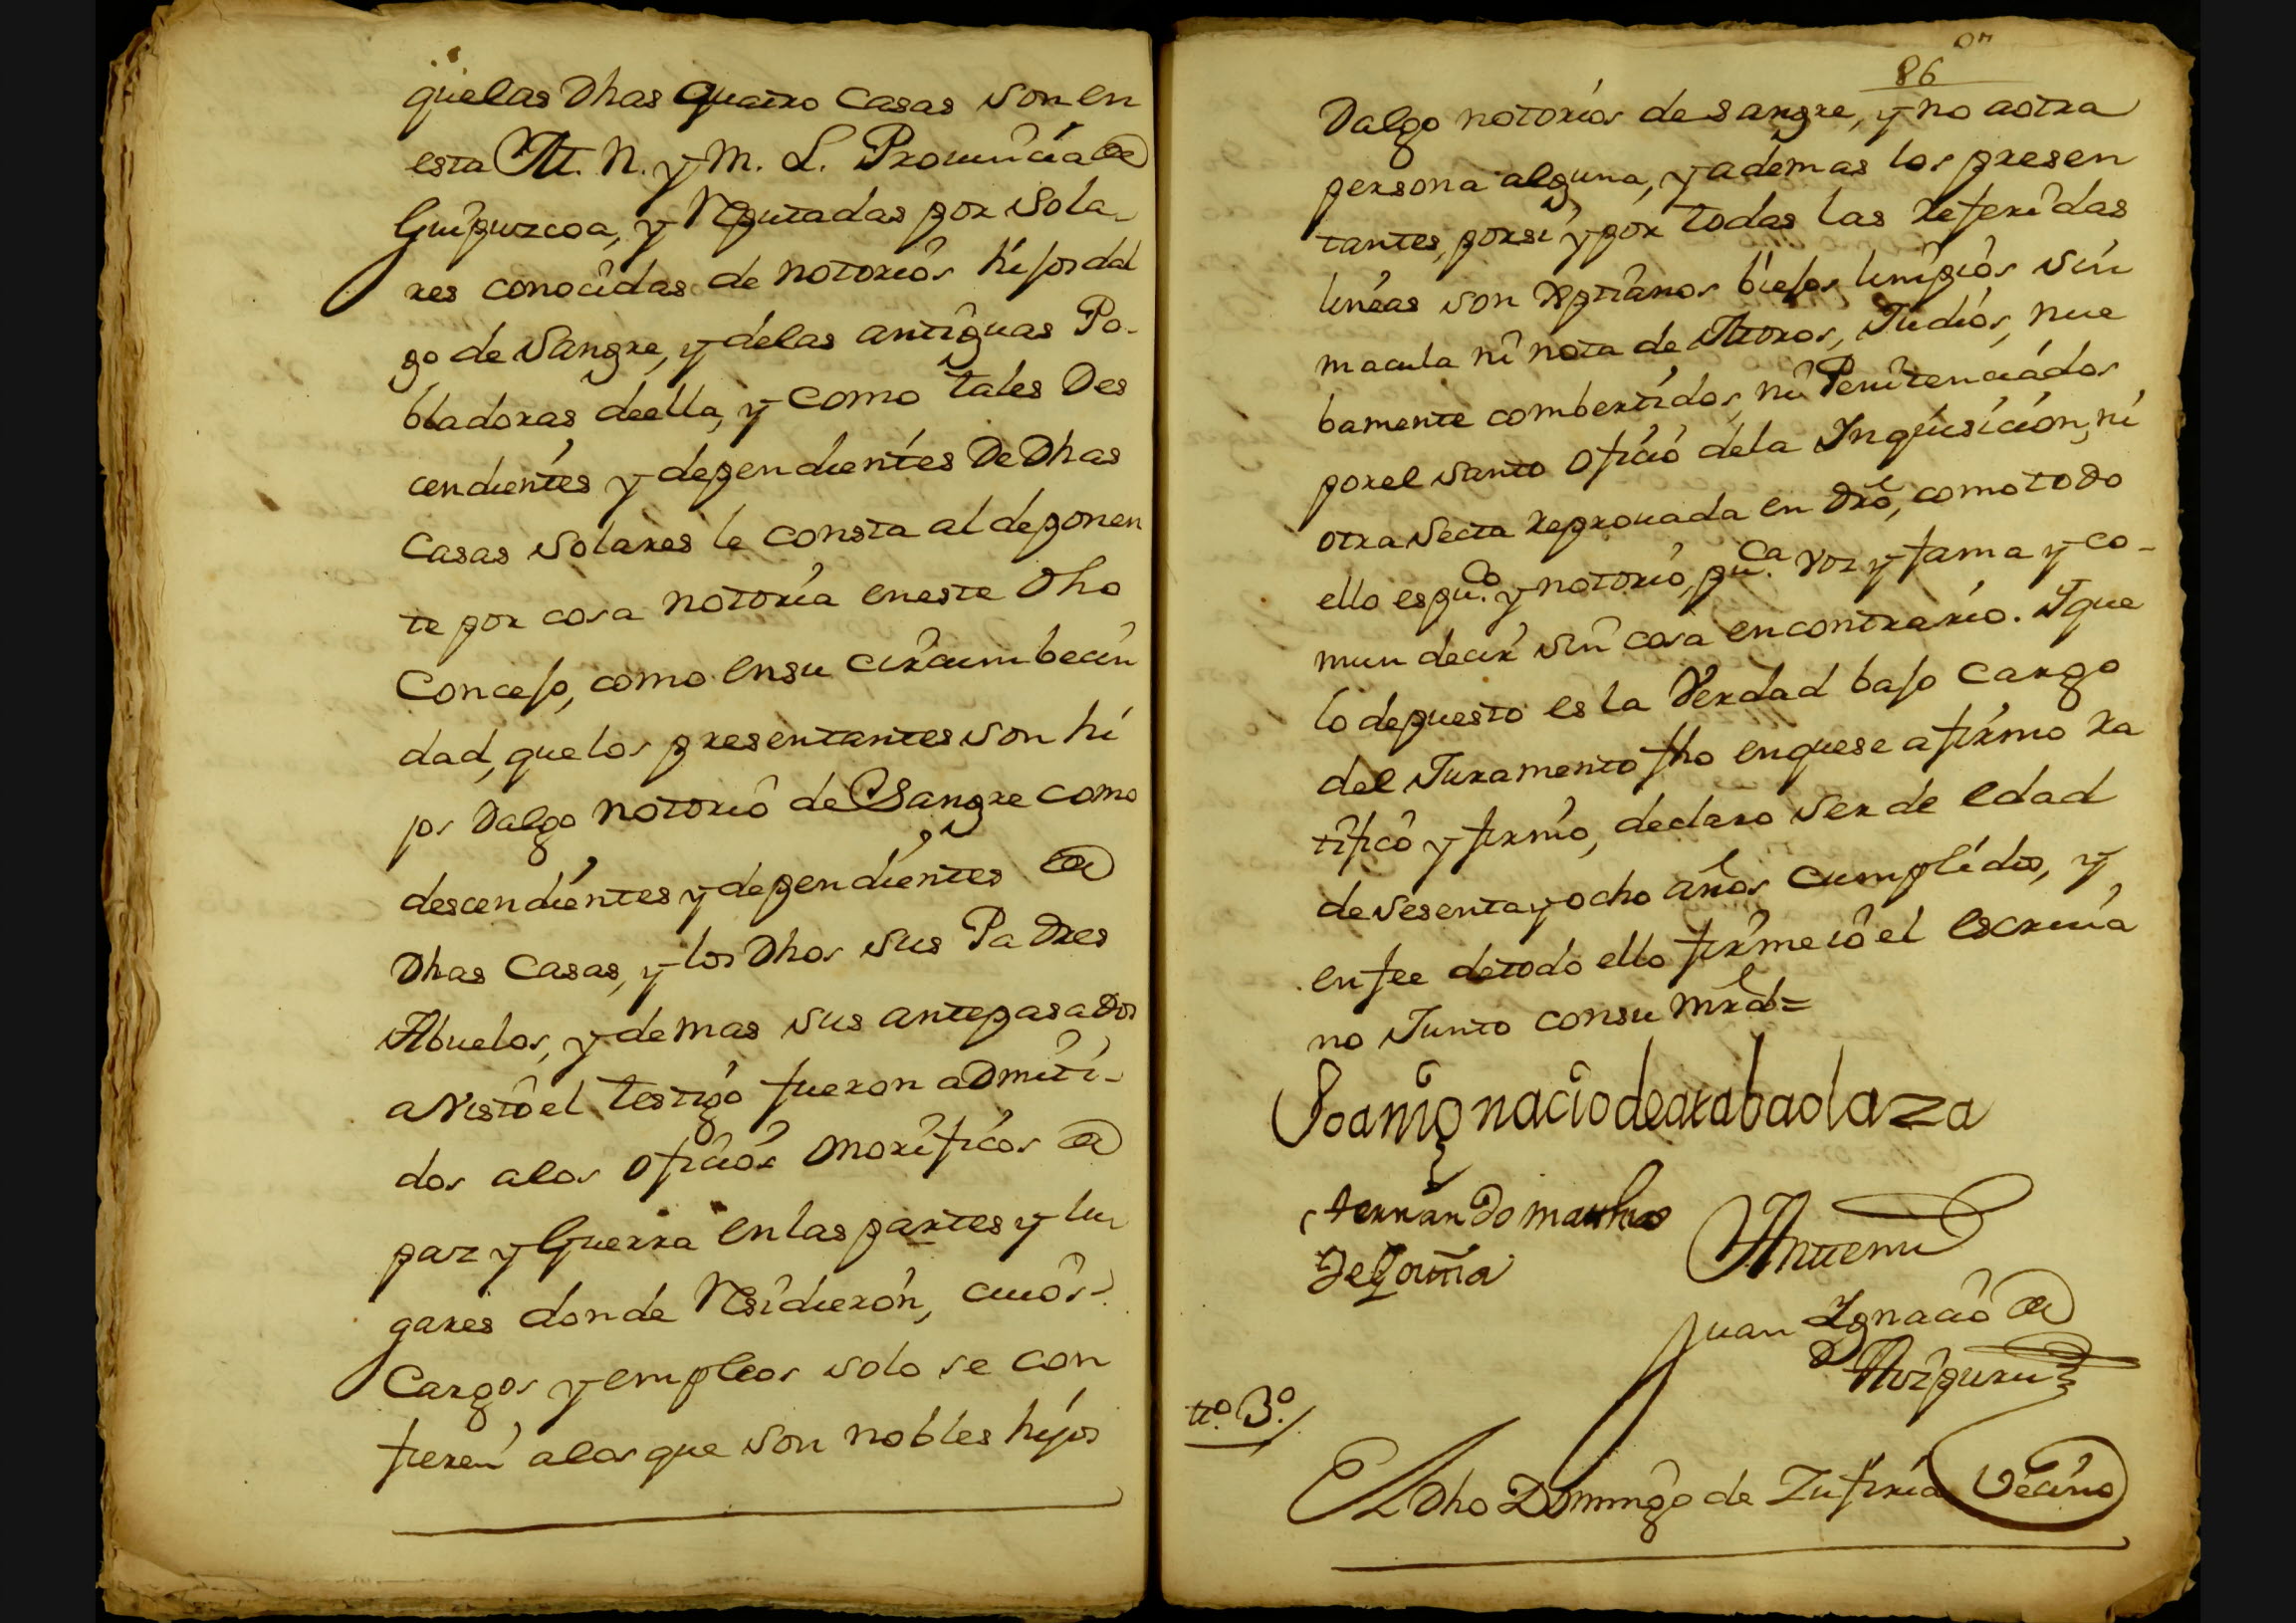 quelas Dhas quatro Casas son en
esta M. N. y M. L. Prouincia de
Guipuzcoa, y Reputadas por Sola-
res conocidas de notorios hijosdal
go de Sangre, y delas antiguas Po-
bladoras deella, y como tales Des
cendientes y dependientes De Dhas
Casas Solares le consta al deponen
te por cosa notoria eneste Dho
Concejo, como ensu circumbecin
dad, quelos presentantes son hi
jos Dalgo notorio de Sangre como
descendientes y dependientes de
Dhas Casas, y los Dhos sus Padres
Abuelos, y demas sus antepasados
a visto el testigo fueron admiti-
dos alos oficios onorificos de
paz y Guerra en las partes y lu
gares donde Residieron, cuios
Cargos y empleos solo se con
fieren alos que son nobles hijos
86
Dalgo notorios de sangre, y no aotra
persona alguna, y ademas los presen
tantes, porsi y por todas las referidas
lineas son xptianos biejos limpios sin
macula ni nota de Moros, Judios, nue
bamente combertidos, ni Penitenciados
porel santo oficio dela Inquisicion, ni
otra secta reprouada en dro, como todo
ello es pu.co y notorio, pu.ca voz y fama y co-
mun decir sin cosa encontrario. Y que
lo depuesto es la Verdad bajo cargo
del Juramento fho enquese afirmo ra
tifico y firmo, declaro ser de edad
de sesenta y ocho años cumplidos, y
en fee detodo ello firme io el escriua
no Junto consu mrd=
Joanignacio dearabaolaza
Fernando
Antemi
Juan Ignacio de
Aizpuru
tt.o 3.o
El Dho Domingo de Zufiria Vecino